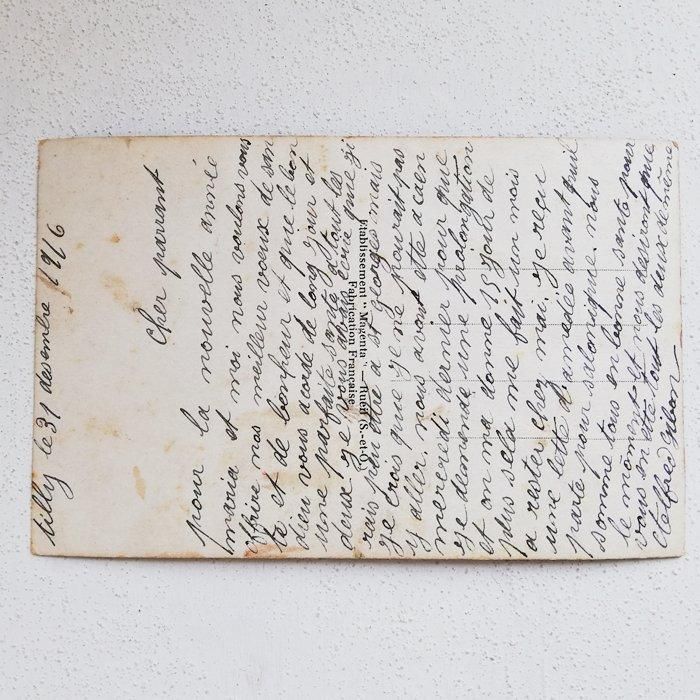 tilly le 31 desembre 1916
Cher parrant
pour la nouvelle année
maria et moi nous voulons vous
offrire nos meilleur voeux de san
te et de bonheur et que le bon
dieu vous acorde de long jour et
une parfaite sante a tout les
deux je vous avais écrie que ji
rais peu etre a st Georges mais
je crois que je ne pourait pas
y aller. nous avont ete a caen
mercredi dernier pour que
je demande une prolongation
et on ma donné 15 jour de
plus sela me fait un mois
a rester chez moi. je reçu
une lette d'amedée avant quil
parte pour salonique. nous
somme tous en bonne sante pour
le moment et nous desiront que
vous en ete tout les deux de même
Alfred
Etablissement "Magenta" — Rueil (S.-et-O.)
Fabrication Française